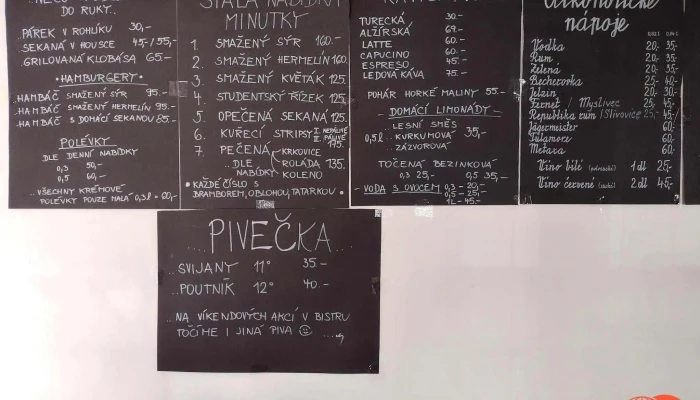 DO RUKY..
PÁREK V ROHLÍKU 30,-
SEKANÁ V HOUSCE 45,-/55,-
GRILOVANÁ KLOBÁSA 65.-
•HAMBURGERY•
..HAMBÁČ SMAŽENÝ SÝR 95.-
HAMBÁČ SMAŽENÝ HERMELÍN 95.-
HAMBÁČ S DOMÁCÍ SEKANOU 85.-
POLÉVKY
DLE DENNÍ NABÍDKY
0,3 50,-
0,5 60,-
...VŠECHNY KRÉMOVÉ
POLÉVKY POUZE MALÁ 0,3l • 60,-
STÁLÁ NABÍDKA
MINUTKY
1. SMAŽENÝ SÝR 160.-
2. SMAŽENÝ HERMELÍN 160.
3. SMAŽENÝ KVĚTÁK 125.
4. STUDENTSKÝ ŘÍZEK 125.
5. OPEČENÁ SEKANÁ 125.
6. KUŘECÍ STRIPSY I. NEPÁLIVÉ II. PÁLIVÉ 175.-
7. PEČENÁ KRKOVICE
..DLE ROLÁDA 135.
NABÍDKY KOLENO
•KAŽDÉ ČÍSLO S
BRAMBOREM, OBLOHOU, TATARKOU •
TURECKÁ 30.-
ALŽÍRSKÁ 69.-
LATTE 60.-
CAPUCINO 60.-
ESPRESO 45.-
LEDOVÁ KÁVA 75.-
POHÁR HORKÉ MALINY 55.-
DOMÁCÍ LIMONÁDY
..LESNÍ SMĚS
0,5l KURKUMOVÁ 35,-
ZÁZVOROVÁ
TOČENÁ BEZINKOVÁ
0,3 25,- 0,5 35,-
-VODA S OVOCEM 0,3 - 20,-
0,5 - 25,-
1L - 45.-
Alkoholické
nápoje
0,02 l 0,04 l
Vodka 20,- 35,-
Rum 20,- 35,-
Zelená 20,- 35,-
Becherovka 25,- 40,-
Jelzin 20,- 30,-
Fernet / Myslivec 25,- 45,-
Republika rum / Slivovice 25,- 45,-
Jägermeister 60,-
Tullamore 60,-
Metaxa 60,-
Víno bílé 1 dl 25,-
Víno červené (suché) 2 dl 45,-
PIVEČKA
..SVIJANY 11° 35.-
..POUTNÍK 12° 40.-
..NA VÍKENDOVÝCH AKCÍ V BISTRU
TOČÍME I JINÁ PIVA ☺ ....